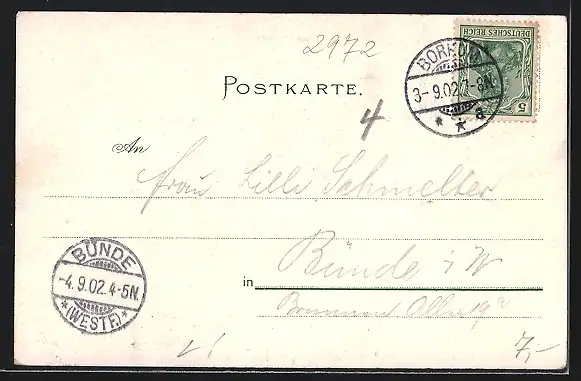 2972
BORKUM
3-9.02.7-8N.
* * a
DEUTSCHES REICH
5
POSTKARTE.
4
An
Frau Lilli Schmelter
BÜNDE
-4.9.02.4-5N.
*(WESTF.)*
Bünde i W
in
7,-